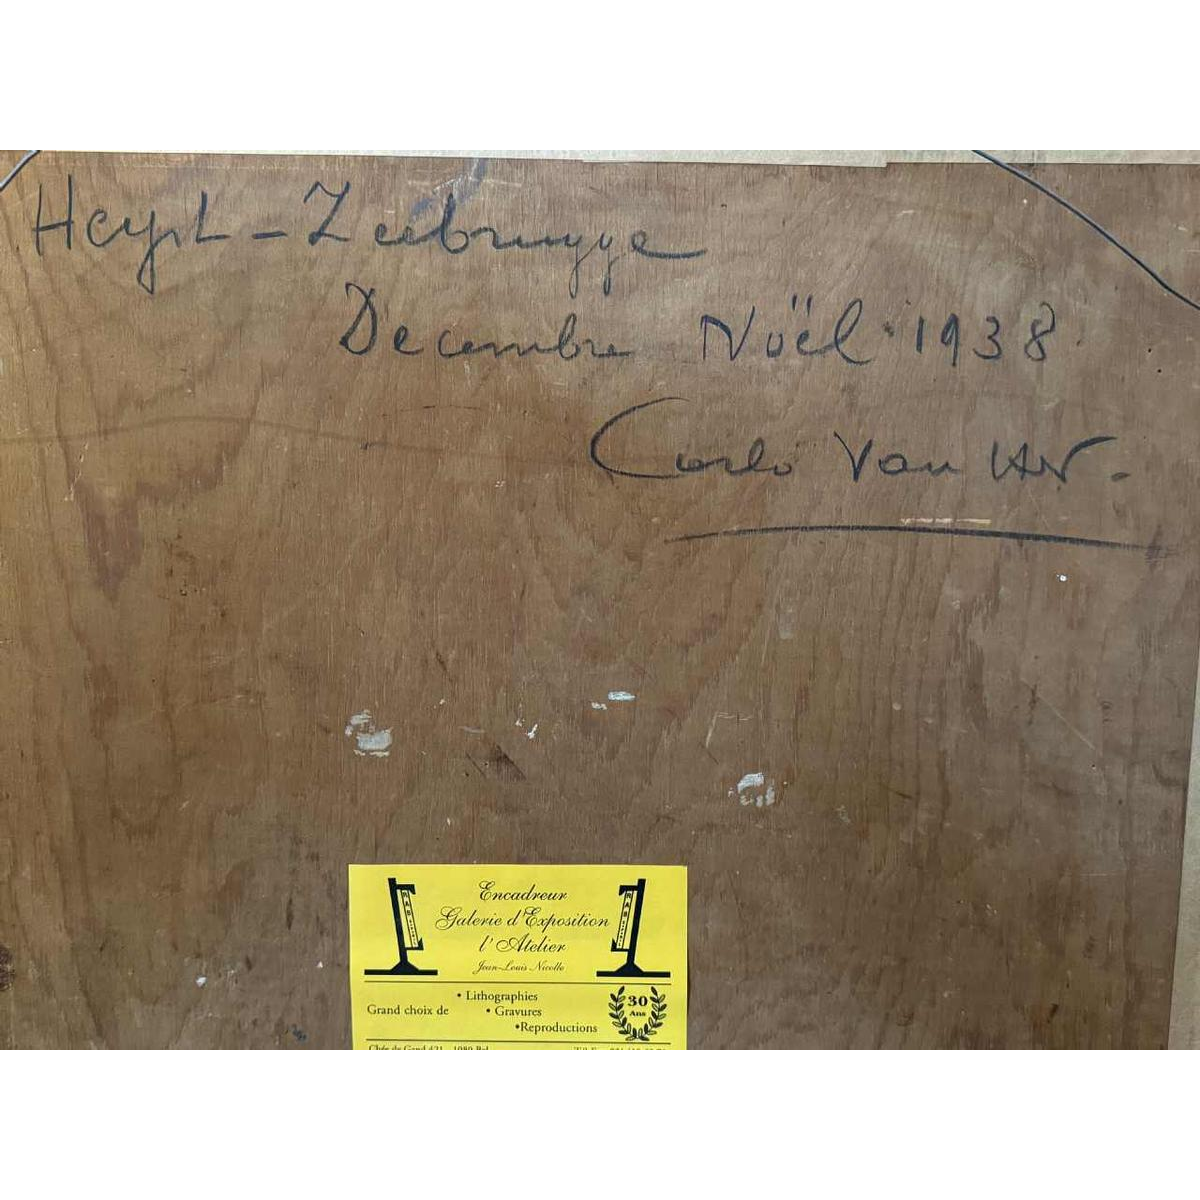 Heyst-Zeebrugge
Decembre Noël. 1938
Carlo Van
Encadreur
Galerie d'Exposition
l'Atelier
Jean-Louis Nicolle
Grand choix de
• Lithographies
• Gravures
•Reproductions
30
Ans
Chée de Gand 421 - 1080